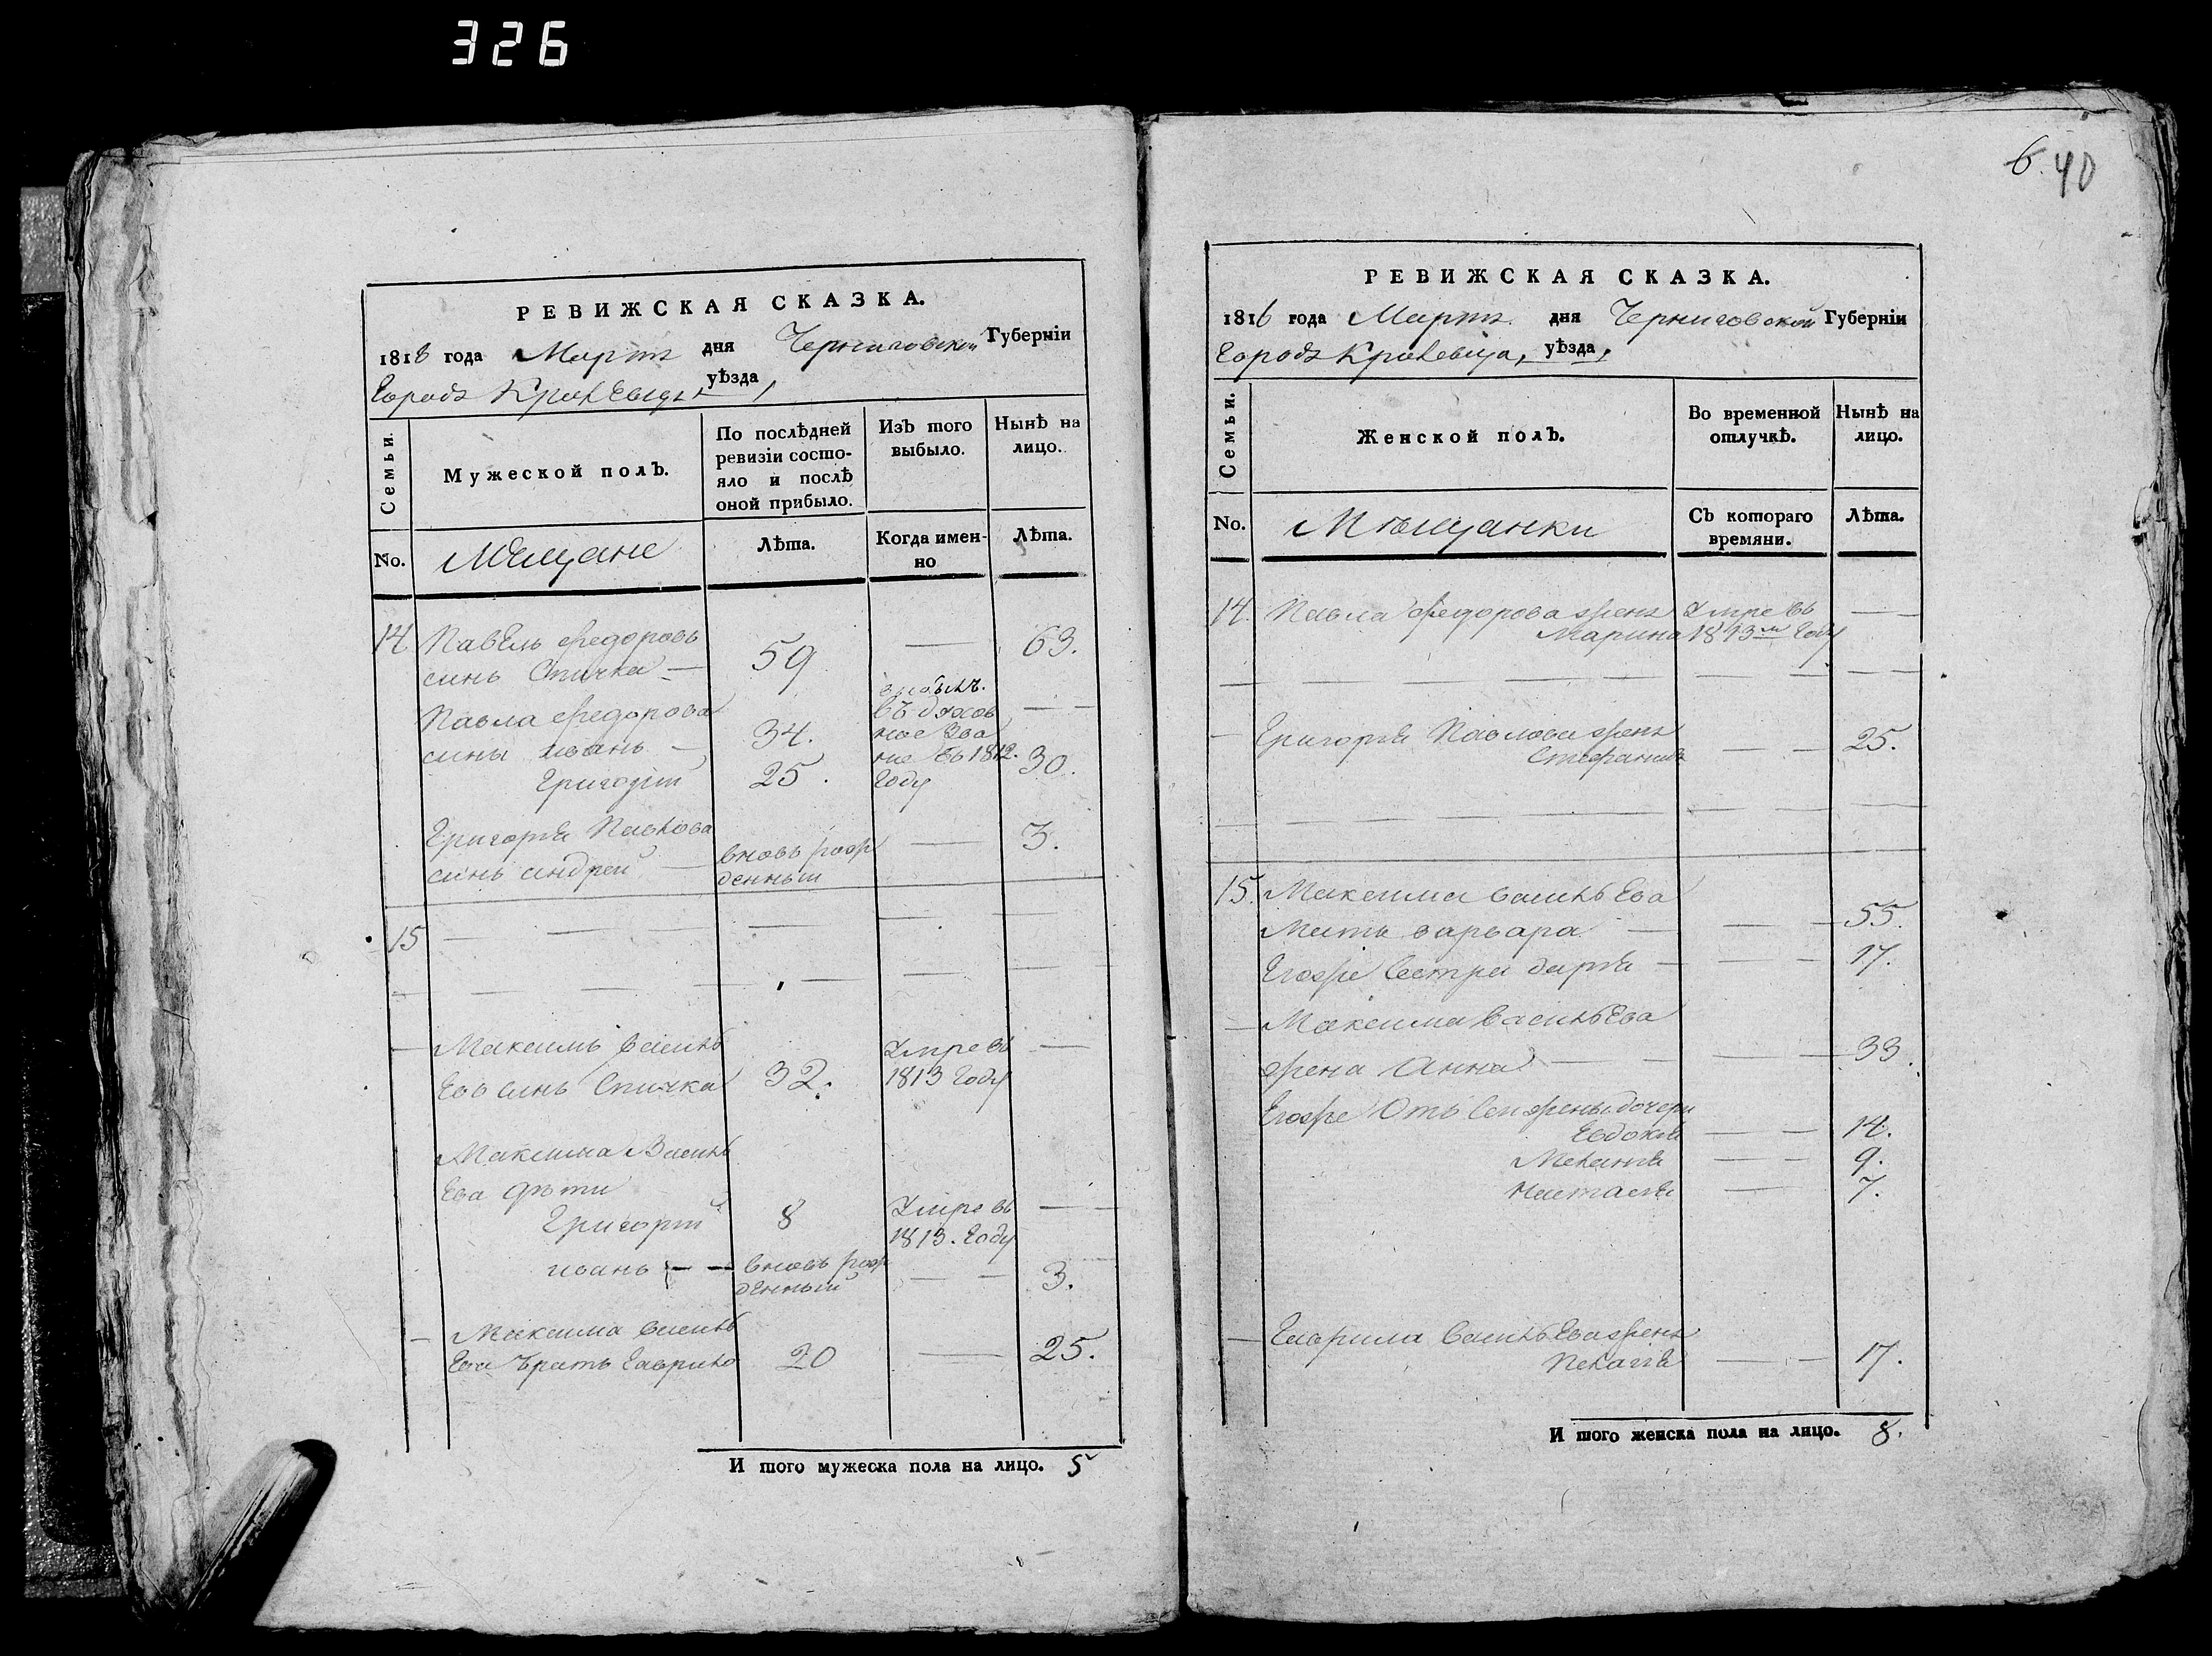 326
РЕВИЖСКАЯ СКАЗКА.
1816 года Мартъ дня Черниговской Губерніи
Города Кролевца, уѣзда,
Семьи.
Мужеской полъ.
По послѣдней
ревизіи состо-
яло и послѣ
оной прибыло.
Изъ того
выбыло.
Нынѣ на
лицо.
No.
Мѣщане
Лѣта.
Когда имен-
но
Лѣта.
14 Павелъ Федоровъ
синъ Спичка — 59 — 63.
Павла Федорова
сины иванъ — 34.
въ духов
ное Зва
ние въ 1812.
Году
Григорій 25. 30.
Григорія Павлова
синъ андрей — вновь рож
денный — 3.
15
Максимъ василь
евъ синъ Спичка 32. Умре въ
1813 Году —
Максима Василь
ева дѣти
Григорій 8 Умре въ
1813. Году —
иванъ — — вновь рож
денный — — 3.
— Максима василь
ева братъ Гаврило 20 — 25.
И того мужеска пола на лицо. 5
6. 40
РЕВИЖСКАЯ СКАЗКА.
1816 года Мартъ. дня Черниговской Губерніи
Города Кролевца, уѣзда,
Семьи.
Женской полъ.
Во временной
отлучкѣ.
Нынѣ на
лицо.
No.
Мѣщанки
Съ котораго
времяни.
Лѣта.
14. Павла Федорова жена Умре въ —
Марина 1813м Году
— Григорія Павлова жена
Стефанида — — 25.
15. Максима васильева
Мать варвара — — — 55.
Егожъ Сестра дарія — — — 17.
— Максима васильева
жена Анна — — — 33.
Егожъ Отъ Сей жены дочери
Евдокія — — 14.
Меланія — — 9.
Настасія — 7.
— Гаврила васильева жена
Пелагія — — 17.
И того женска пола на лицо. 8.